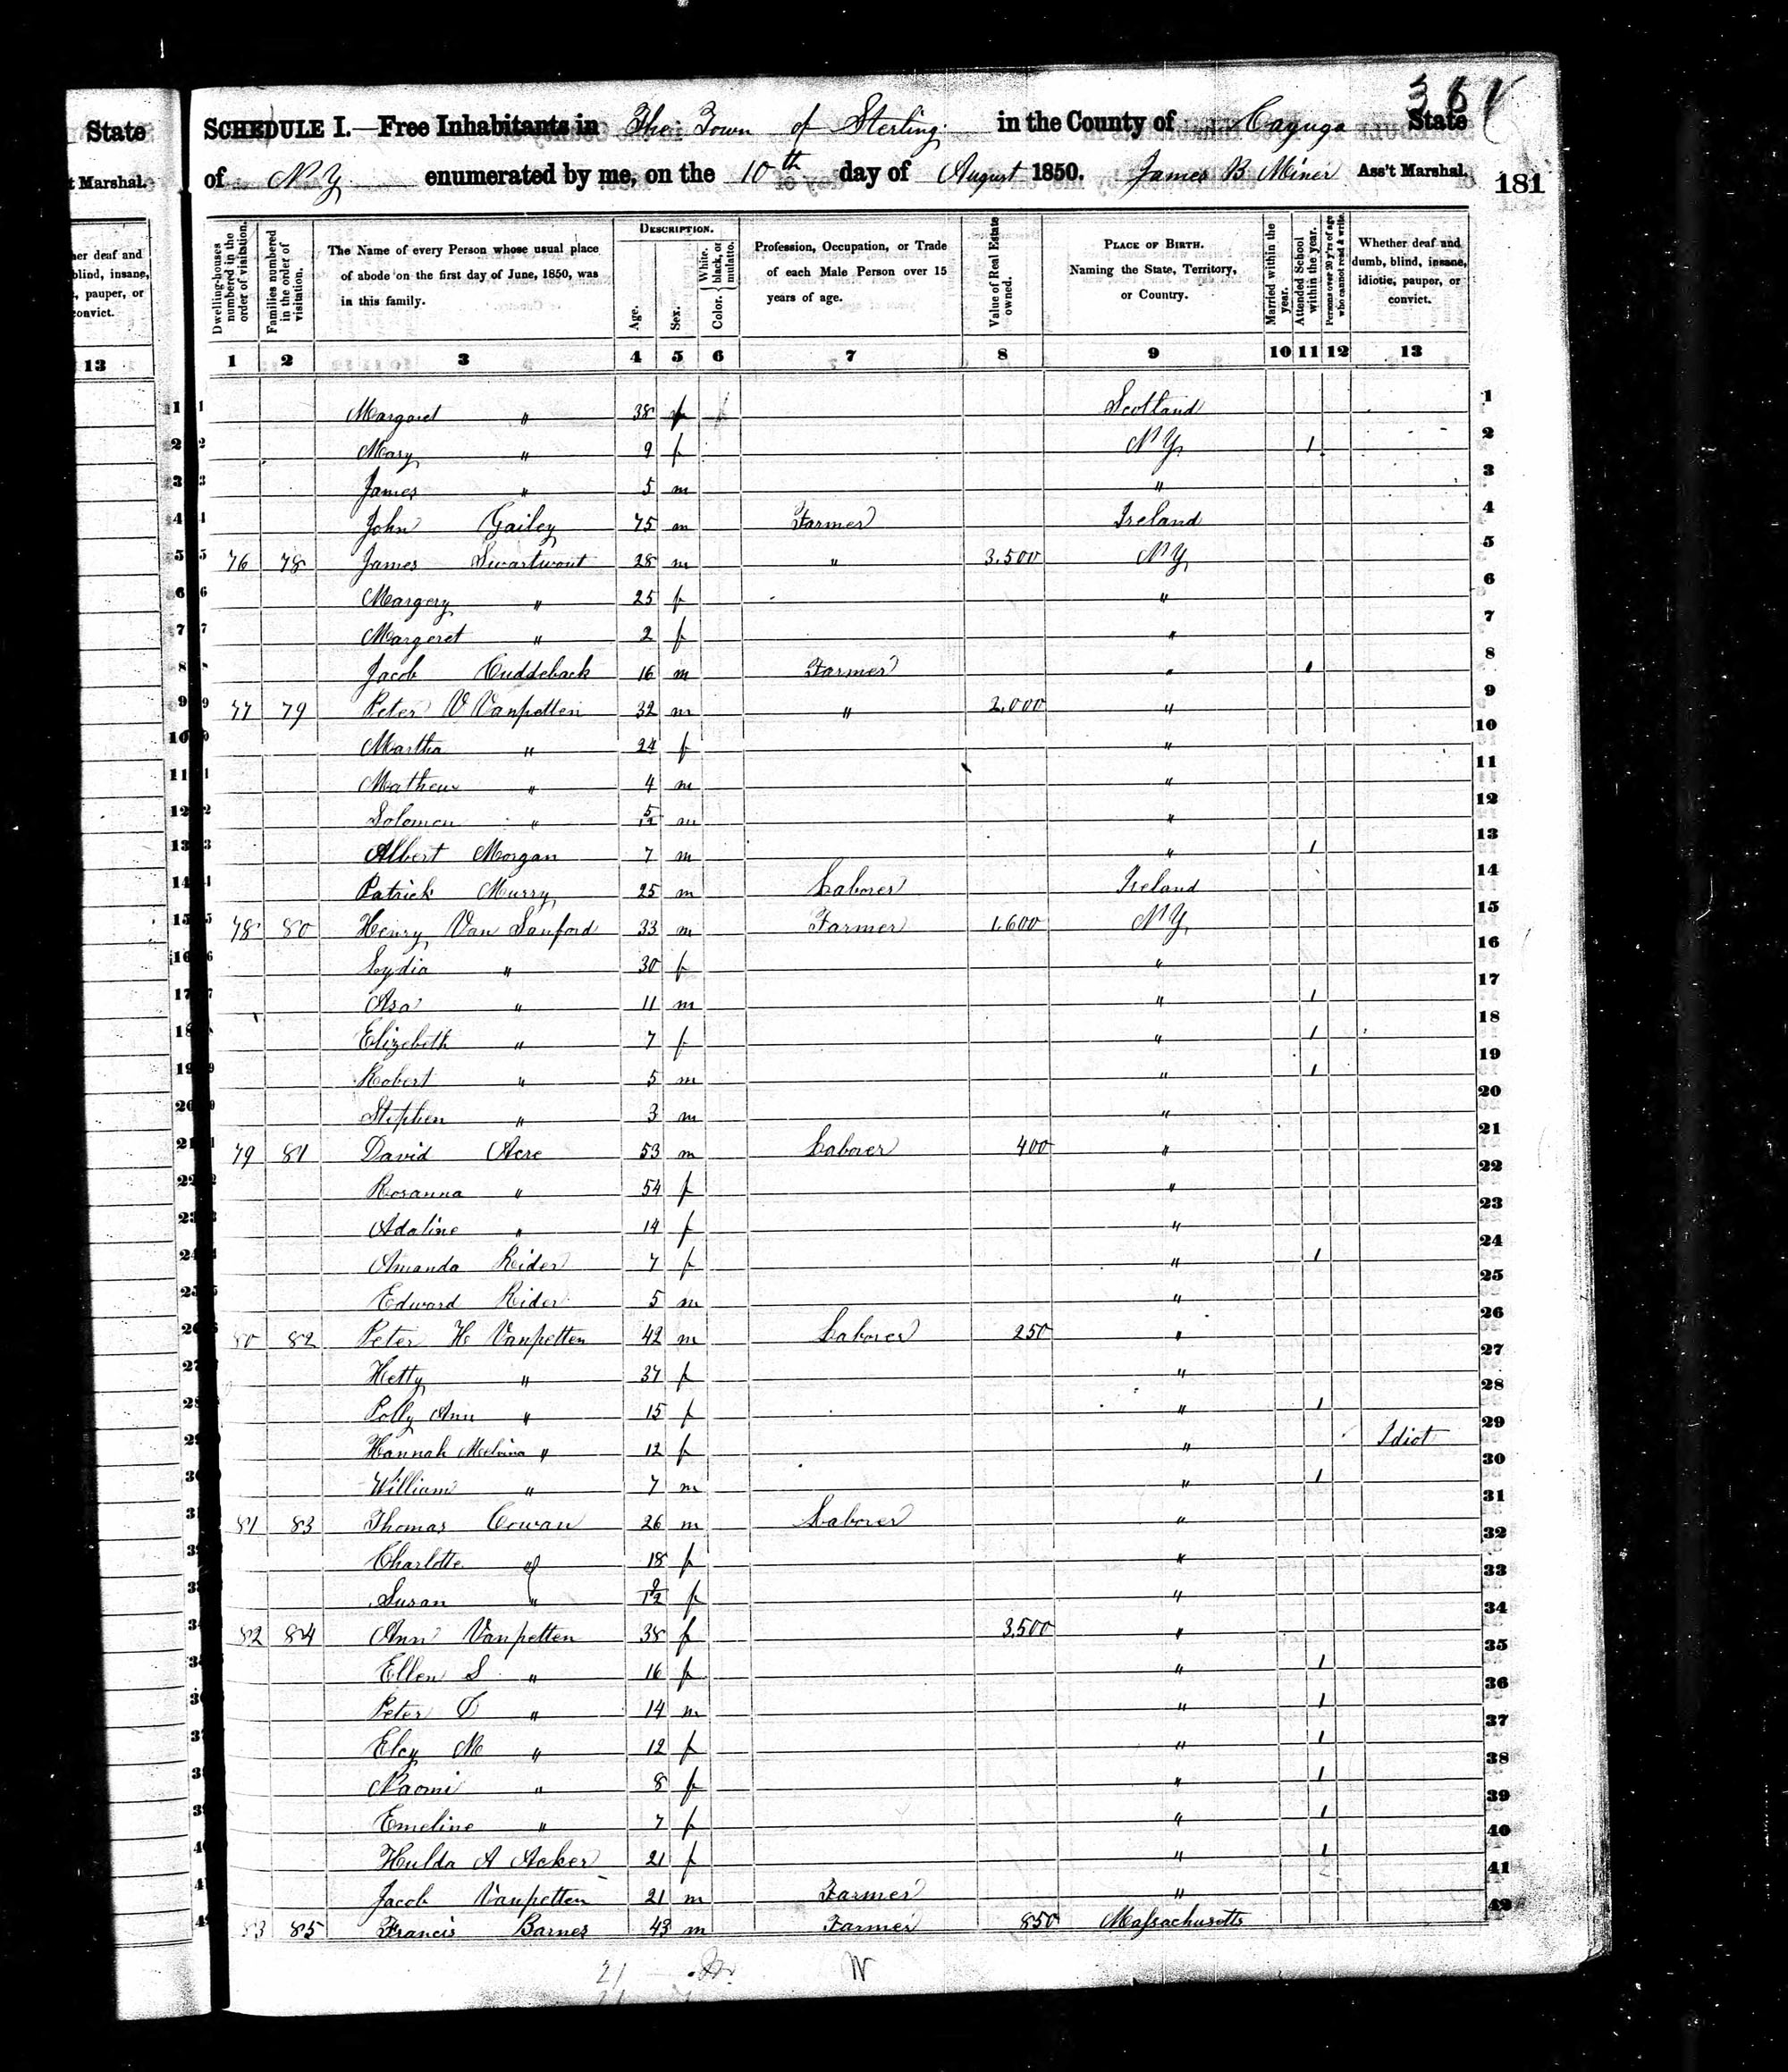 361
State
SCHEDULE I.—Free Inhabitants in The Town of Sterling in the County of Cayuga State
t Marshal. of N Y enumerated by me, on the 10th day of August 1850. James B Miner Ass't Marshal. 181
her deaf and
blind, insane,
, pauper, or
convict.
13
Dwelling-houses numbered in the order of visitation.
Families numbered in the order of visitation.
The Name of every Person whose usual place of abode on the first day of June, 1850, was in this family.
DESCRIPTION.
Age.
Sex.
Color. White, black, or mulatto.
Profession, Occupation, or Trade of each Male Person over 15 years of age.
Value of Real Estate owned.
PLACE OF BIRTH. Naming the State, Territory, or Country.
Married within the year.
Attended School within the year.
Persons over 20 y'rs of age who cannot read & write.
Whether deaf and dumb, blind, insane, idiotic, pauper, or convict.
1 2 3 4 5 6 7 8 9 10 11 12 13
1 Margaret " 38 f Scotland 1
2 Mary " 9 f N Y 1 2
3 James " 5 m " 3
4 John Gailey 75 m Farmer Ireland 4
5 76 78 James Swartwout 28 m " 3,500 N Y 5
6 Margery " 25 f " 6
7 Margeret " 2 f " 7
8 Jacob Cuddeback 16 m Farmer " 1 8
9 77 79 Peter V Vanpetten 32 m " 2,000 " 9
10 Martha " 24 f " 10
11 Mathew " 4 m " 11
12 Solomon " 5/12 m " 12
13 Albert Morgan 7 m " 1 13
14 Patrick Murry 25 m Laborer Ireland 14
15 78 80 Henry Van Sanford 33 m Farmer 1,600 N Y 15
16 Lydia " 30 f " 16
17 Asa " 11 m " 1 17
18 Elizebeth " 7 f " 1 18
19 Robert " 5 m " 1 19
20 Stephen " 3 m " 20
21 79 81 David Acre 53 m Laborer 400 " 21
22 Rosanna " 54 f " 22
23 Adaline " 14 f " 23
24 Amanda Rider 7 f " 1 24
25 Edward Rider 5 m " 25
26 80 82 Peter H Vanpetten 42 m Laborer 250 " 26
27 Hetty " 37 f " 27
28 Polly Ann " 15 f " 1 28
29 Hannah Melvina " 12 f " Idiot 29
30 William " 7 m " 1 30
31 81 83 Thomas Cowan 26 m Laborer " 31
32 Charlotte " 18 f " 32
33 Susan " 9/12 f " 33
34 82 84 Ann Vanpetten 38 f 3,500 " 34
35 Ellen S " 16 f " 1 35
36 Peter D " 14 m " 1 36
37 Elcy M " 12 f " 1 37
38 Naomi " 8 f " 1 38
39 Emeline " 7 f " 1 39
40 Hulda A Acker 21 f " 1 40
41 Jacob Vanpetten 21 m Farmer " 41
42 83 85 Francis Barnes 43 m Farmer 850 Massachusetts 42
21 W